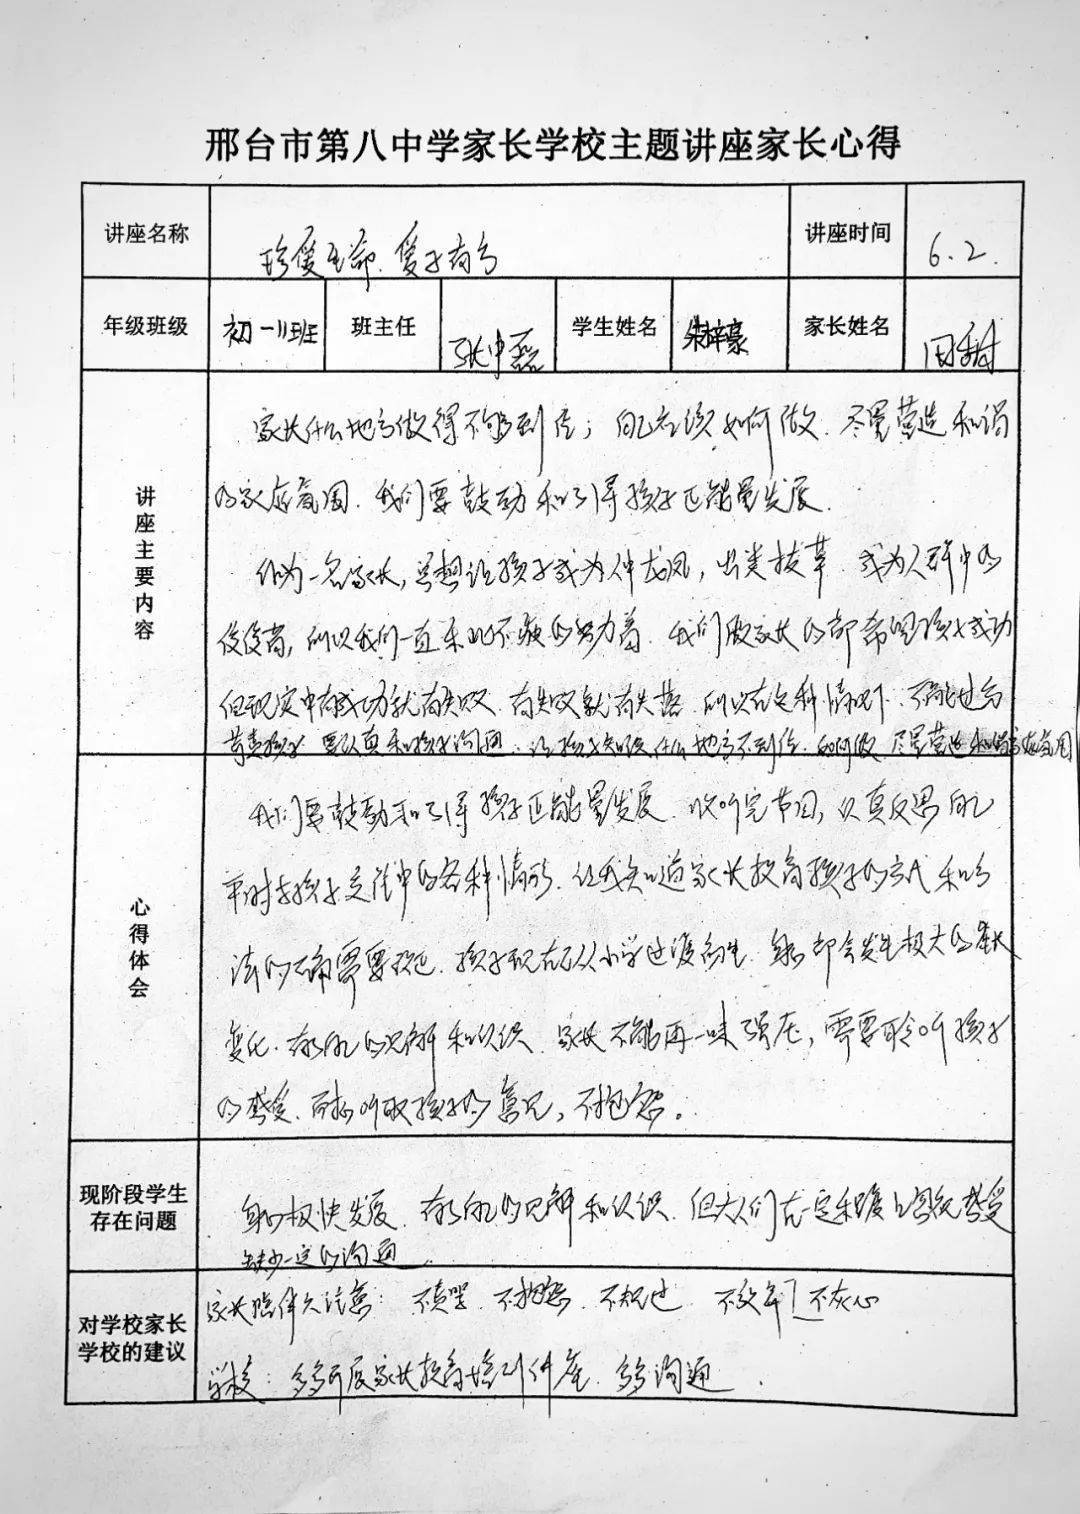 邢台市第八中学家长学校主题讲座家长心得
讲座名称 珍爱生命.爱子有方 讲座时间 6.2.
年级班级 初一11班 班主任 张中磊 学生姓名 朱梓豪 家长姓名
讲座主要内容
家长什么地方做得不够到位；自己应该如何做.尽量营造和谐
的家庭氛围.我们要鼓励和引导孩子正能量发展.
作为一名家长，总想让孩子成为人中龙凤，出类拔萃.成为人群中的
佼佼者，所以我们一直乐此不疲的努力着.我们做家长的都希望孩子成功
但现实中有成功就有失败.有失败就有失落.所以在这种情况下.不能过分
苛责孩子 要认真和孩子沟通.让孩子知道什么地方不到位.如何做 尽量营造和谐家庭氛围
心得体会
我们要鼓励和引导孩子正能量发展.收听完节目，认真反思自己
平时与孩子交往中的各种情形.让我知道家长教育孩子的方式和方
法的确需要改进.孩子现在从小学过渡初中生.身心都会发生极大的成长
变化.有自己的见解和认识.家长不能再一味强压，需要聆听孩子
的感受.耐心听取孩子的意见，不抱怨。
现阶段学生存在问题
身心极快发展.有自己的见解和认识.但大人们在一定程度上忽视感受
缺少一定的沟通
对学校家长学校的建议
家长陪伴久注意：不责骂.不抱怨.不 不 不灰心
学校：多多开展家长教育培训讲座.多多沟通.